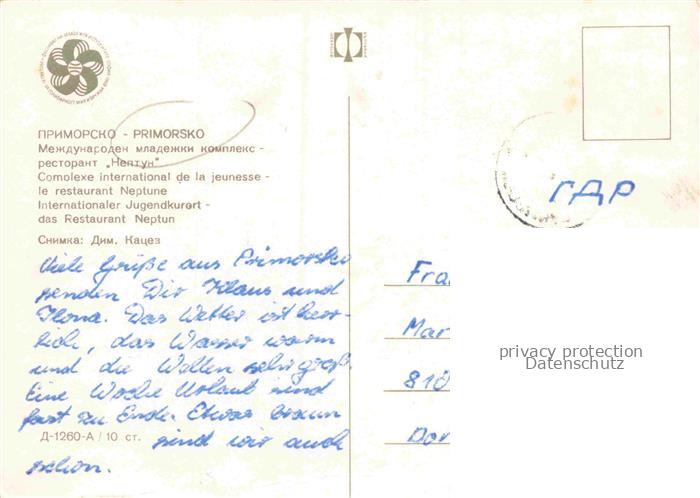 ПРИМОРСКО - PRIMORSKO
Международен младежки комплекс -
ресторант „Нептун"
Comolexe international de la jeunesse -
le restaurant Neptune
Internationaler Jugendkurort -
das Restaurant Neptun
Снимка: Дим. Кацев
Viele Grüße aus Primorsko
senden Dir Klaus und
Ilona. Das Wetter ist herr-
lich, das Wasser warm
und die Wellen sehr groß.
Eine Woche Urlaub sind
fast zu Ende. Etwas braun
Д-1260-А / 10 ст.
sind wir auch
schon.
ГДР
Fra
Mar
810
Dor
privacy protection
Datenschutz